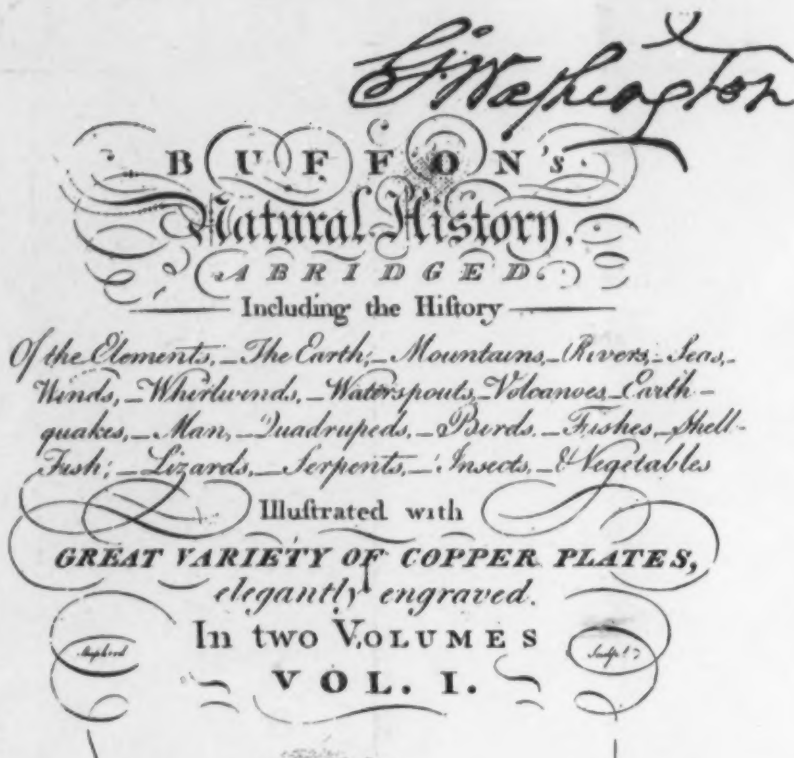 G:Washington
BUFFON's
Natural History,
ABRIDGED.
Including the Hiſtory
Of the Elements,_The Earth;_Mountains,_Rivers,_Seas,_
Winds,_Whirlwinds,_Waterspouts,_Volcanoes,_Earth-
quakes,_Man,_Quadrupeds,_Birds,_Fishes,_Shell-
Fish;_Lizards,_Serpents,_Insects,_&Vegetables
Illuſtrated with
GREAT VARIETY OF COPPER PLATES,
elegantly engraved.
In two VOLUMES
Shepherd
Sculpt.
VOL. I.